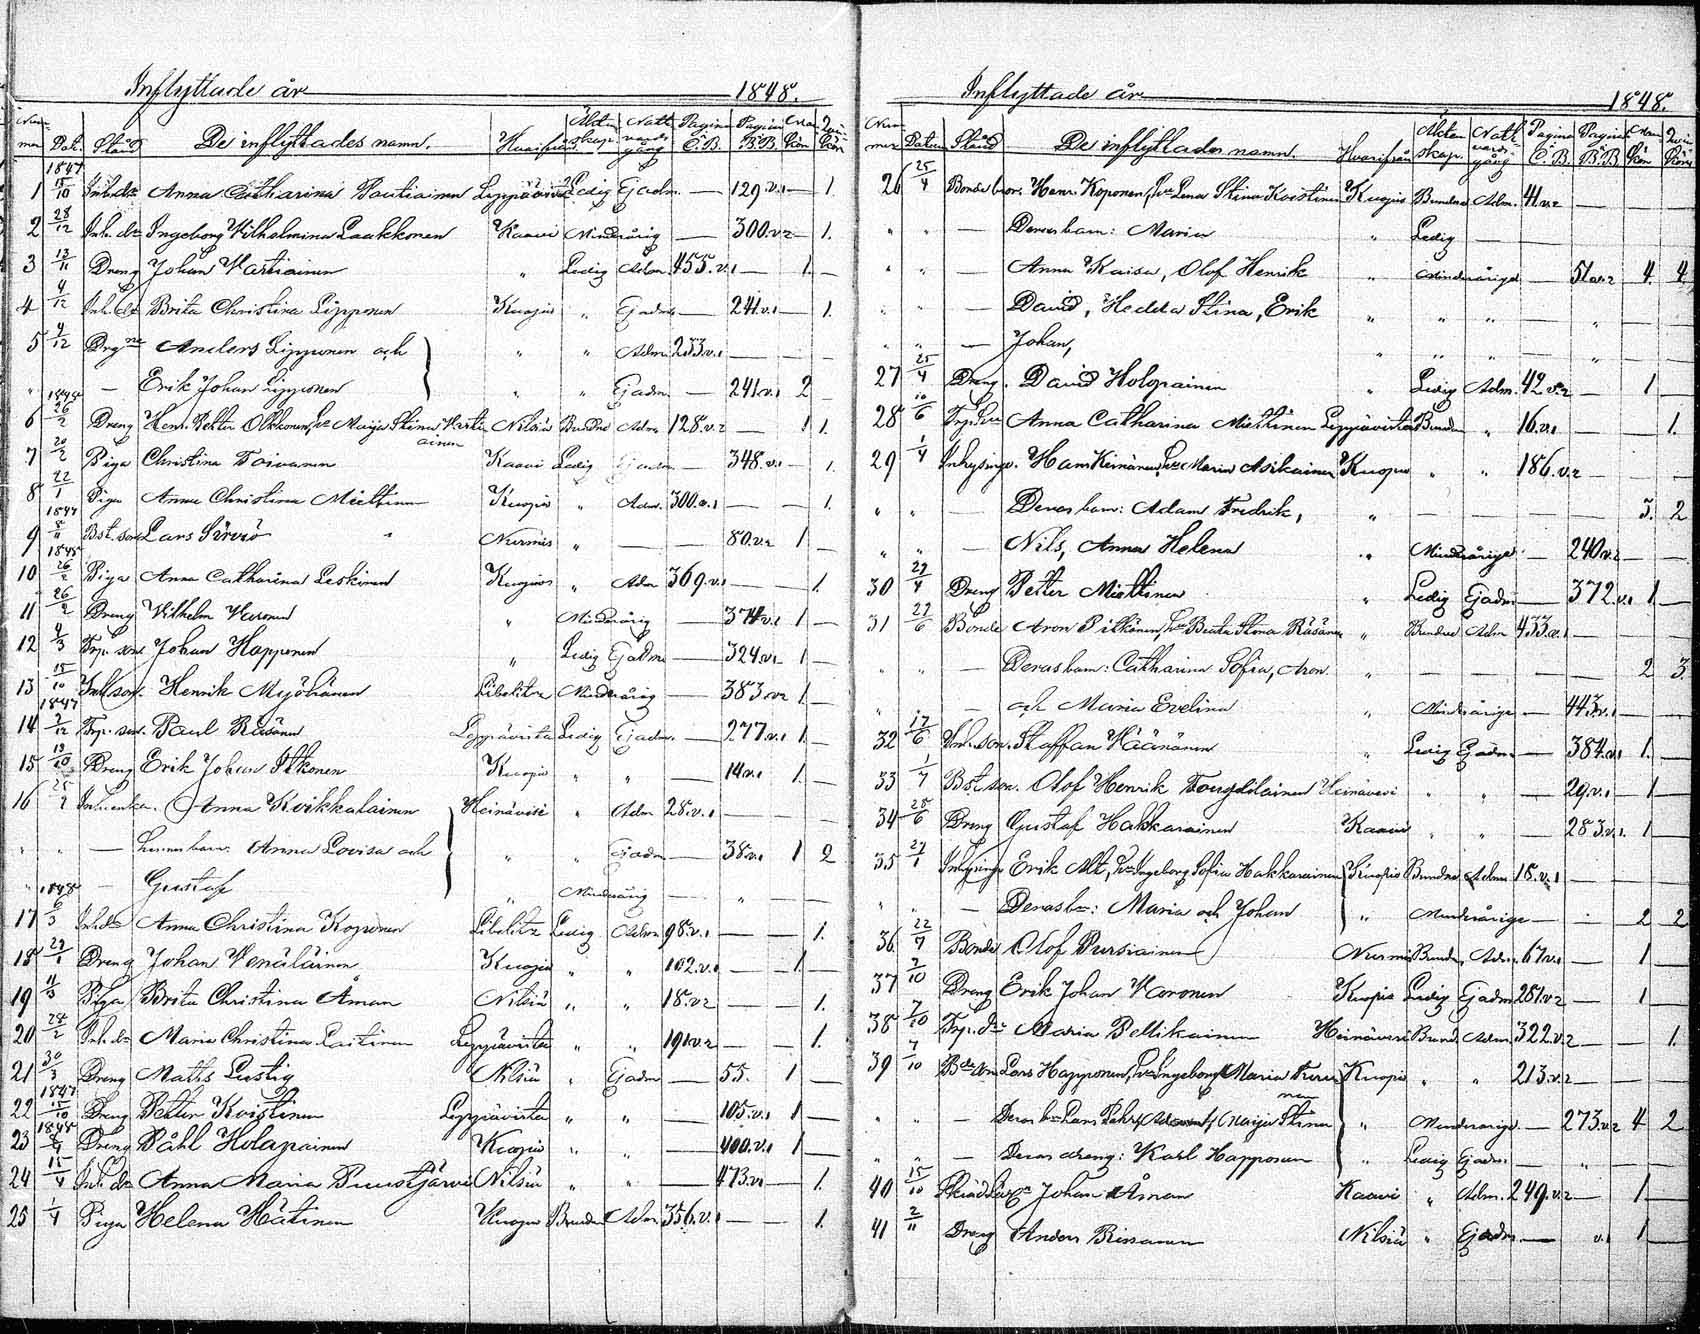 Inflyttade år 1848.
Num mer Dat. Stånd De inflyttades namn. Hvarifrån Äkten skap. Natt vards gång Pagina C.B. Pagina B.B. Man kön Qvin kön
1847
1 15/10 Inh. dr Anna Catharina Rautiainen Leppävirta Ledig Ej adm. — 129.v.1 — 1.
2 28/12 Inh. dr Ingeborg Wilhelmina Laakkonen Kaavi Minderårig — 300.v.2 — 1.
3 13/11 Dreng Johan Wartiainen " Ledig Adm. 455.v.1 — 1. —
4 4/12 Inh. dr Brita Christina Lipponen Kuopio " Ej adm. — 241.v.1 — 1.
5 4/12 Drgne Anders Lipponen och " " Adm. 233.v.1 — — —
" — Erik Johan Lipponen " " Ej adm. — 241.v.1 2 —
1848
6 26/2 Dreng Henr. Petter Olkkonen, hu Maija Stina Varti ainen Nilsiä Bundne Adm. 128.v.2 — 1 1.
7 20/2 Piga Christina Toivanen Kaavi Ledig Ej adm — 348.v.1 — 1.
8 22/1 Piga Anna Christina Miettinen Kuopio " Adm. 300.v.1 — — 1.
1847
9 8/11 Bst. son Lars Sirviö Nurmis " — — 80.v.2 1 —
1848
10 26/2 Piga Anna Catharina Leskinen Kuopio " Adm 369.v.1 — — 1.
11 26/2 Dreng Wilhelm Varonen " Minderårig — 374.v.1 1 —
12 4/3 Trp. son Johan Happonen " Ledig Ej adm — 324.v.1 1 —
13 15/10 Inh. son. Henrik Myöhänen Libelitz Minderårig — 383.v.2 1. —
1847
14 2/12 Trp. son. Paul Räsänen Leppävirta Ledig Ej adm. — 277.v.1 1. —
15 19/10 Dreng Erik Johan Itkonen Kuopio " " — 14.v.1 1. —
16 25/2 Inh. enka. Anna Kvikkalainen Heinävesi " Adm 28.v.1
" " — hennes barn: Anna Lovisa och " " Ej adm — 38.v.1 1 2
" 1848 — Gustaf " Minderårig — "
17 6/3 Inh. dr Anna Christina Koponen Libelitz Ledig Adm 98.v.1 — — 1.
18 29/1 Dreng Johan Venäläinen Kuopio " " 102.v.1 — 1. —
19 11/3 Piga Brita Christina Åman Nilsiä " " 18.v.2 — — 1.
20 28/2 Inh. dr Maria Christina Laitinen Leppävirta " " 191.v.2 — — 1.
21 30/3 Dreng Maths Lustig Nilsiä " Ej adm — 55. 1 —
1847
22 15/10 Dreng Petter Kvistinen Leppävirta " " — 105.v.1 1 —
1848
23 Dreng Påhl Holapainen Kuopio " " — 400.v.1 1 —
24 15/4 Inh. dr Anna Maria Puustjärvi Nilsiä " " — 473.v.1 — 1.
25 1/4 Piga Helena Hätinen Kuopio Bunden Adm. 356.v.1 — — 1.
Inflyttade år 1848.
Num mer Datum Stånd De inflyttades namn. Hvarifrån Äkten skap. Natt vards gång Pagina C.B. Pagina B.B Man kön Qvin kön
26 25/4 Bonde bror. Henr. Koponen, hu Lena Stina Kvistinen Kuopio Bundne Adm. 41.v.2 — —
" " — Deras barn: Maria " Ledig — — —
" " — Anna Kaisa, Olof Henrik " Minderåriga — 51.v.2 4. 4.
" " — David, Hedda Stina, Erik " " " — " — —
" " — Johan, " " " — " — —
27 25/4 Dreng. David Holopainen " Ledig Adm. 42.v.2 — 1 —
28 10/6 Trp. Anna Catharina Miettinen Leppävirta Bunden " 16.v.1 — — 1.
29 1/4 Inhysing. Hans Keinänen, hu Maria Asikainen Kuopio " " 186.v.2 —
" " — Deras barn: Adam Fredrik, " — — — — 3. 2
" " — Nils, Anna Helena " Minderåriga — 240.v.2 — —
30 29/4 Dreng Petter Miettinen " Ledig Ej adm — 372.v.1 1. —
31 29/6 Bonde Aron Pitkänen, hu Beata Stina Räsänen " Bundne Adm 433.v.1 — — —
" " — Deras barn: Catharina Sofia, Aron. " — — — — 2 3.
" — och Maria Evelina " Minderåriga — 443.v.1 — —
32 17/6 Inh. son. Staffan Väänänen " Ledig Ej adm — 384.v.1 1. —
33 1/7 Bst. son. Olof Henrik Tougdilainen Heinävesi " " — 29.v.1 1 —
34 28/6 Dreng Gustaf Hakkarainen Kaavi " " — 283.v.1. 1 —
35 29/1 Inhysing Erik Alt, hu Ingeborg Sofia Hakkarainen Kuopio Bundne Adm 18.v.1
" " — Deras br: Maria och Johan " Minderåriga — 2 2
36. 22/7 Bonde Olof Pursiainen Nurmis Bunden Adm. 67.v.1 — 1 —
37 2/10 Dreng Erik Johan Voronen Kuopio Ledig Ej adm 281.v.2 — 1 —
38 7/10 Trp. dr Maria Pellikainen Heinävesi Bund. Adm. 322.v.2 — — 1.
39 7/10 Bde son Lars Happonen, hu Ingeborg Maria Turu nen Kuopio " " 213.v.2 — — —
" " — Deras br Lars Petter, Maija Stina " Minderåriga — 273.v.2 4 2
" " — Deras dreng: Karl Happonen " Ledig Ej adm. — " — —
40 15/10 Johan Åman Kaavi " Adm. 249.v.2 — 1 —
41 2/11 Dreng Anders Rissanen Nilsiä " Ej adm — v.1 1 —